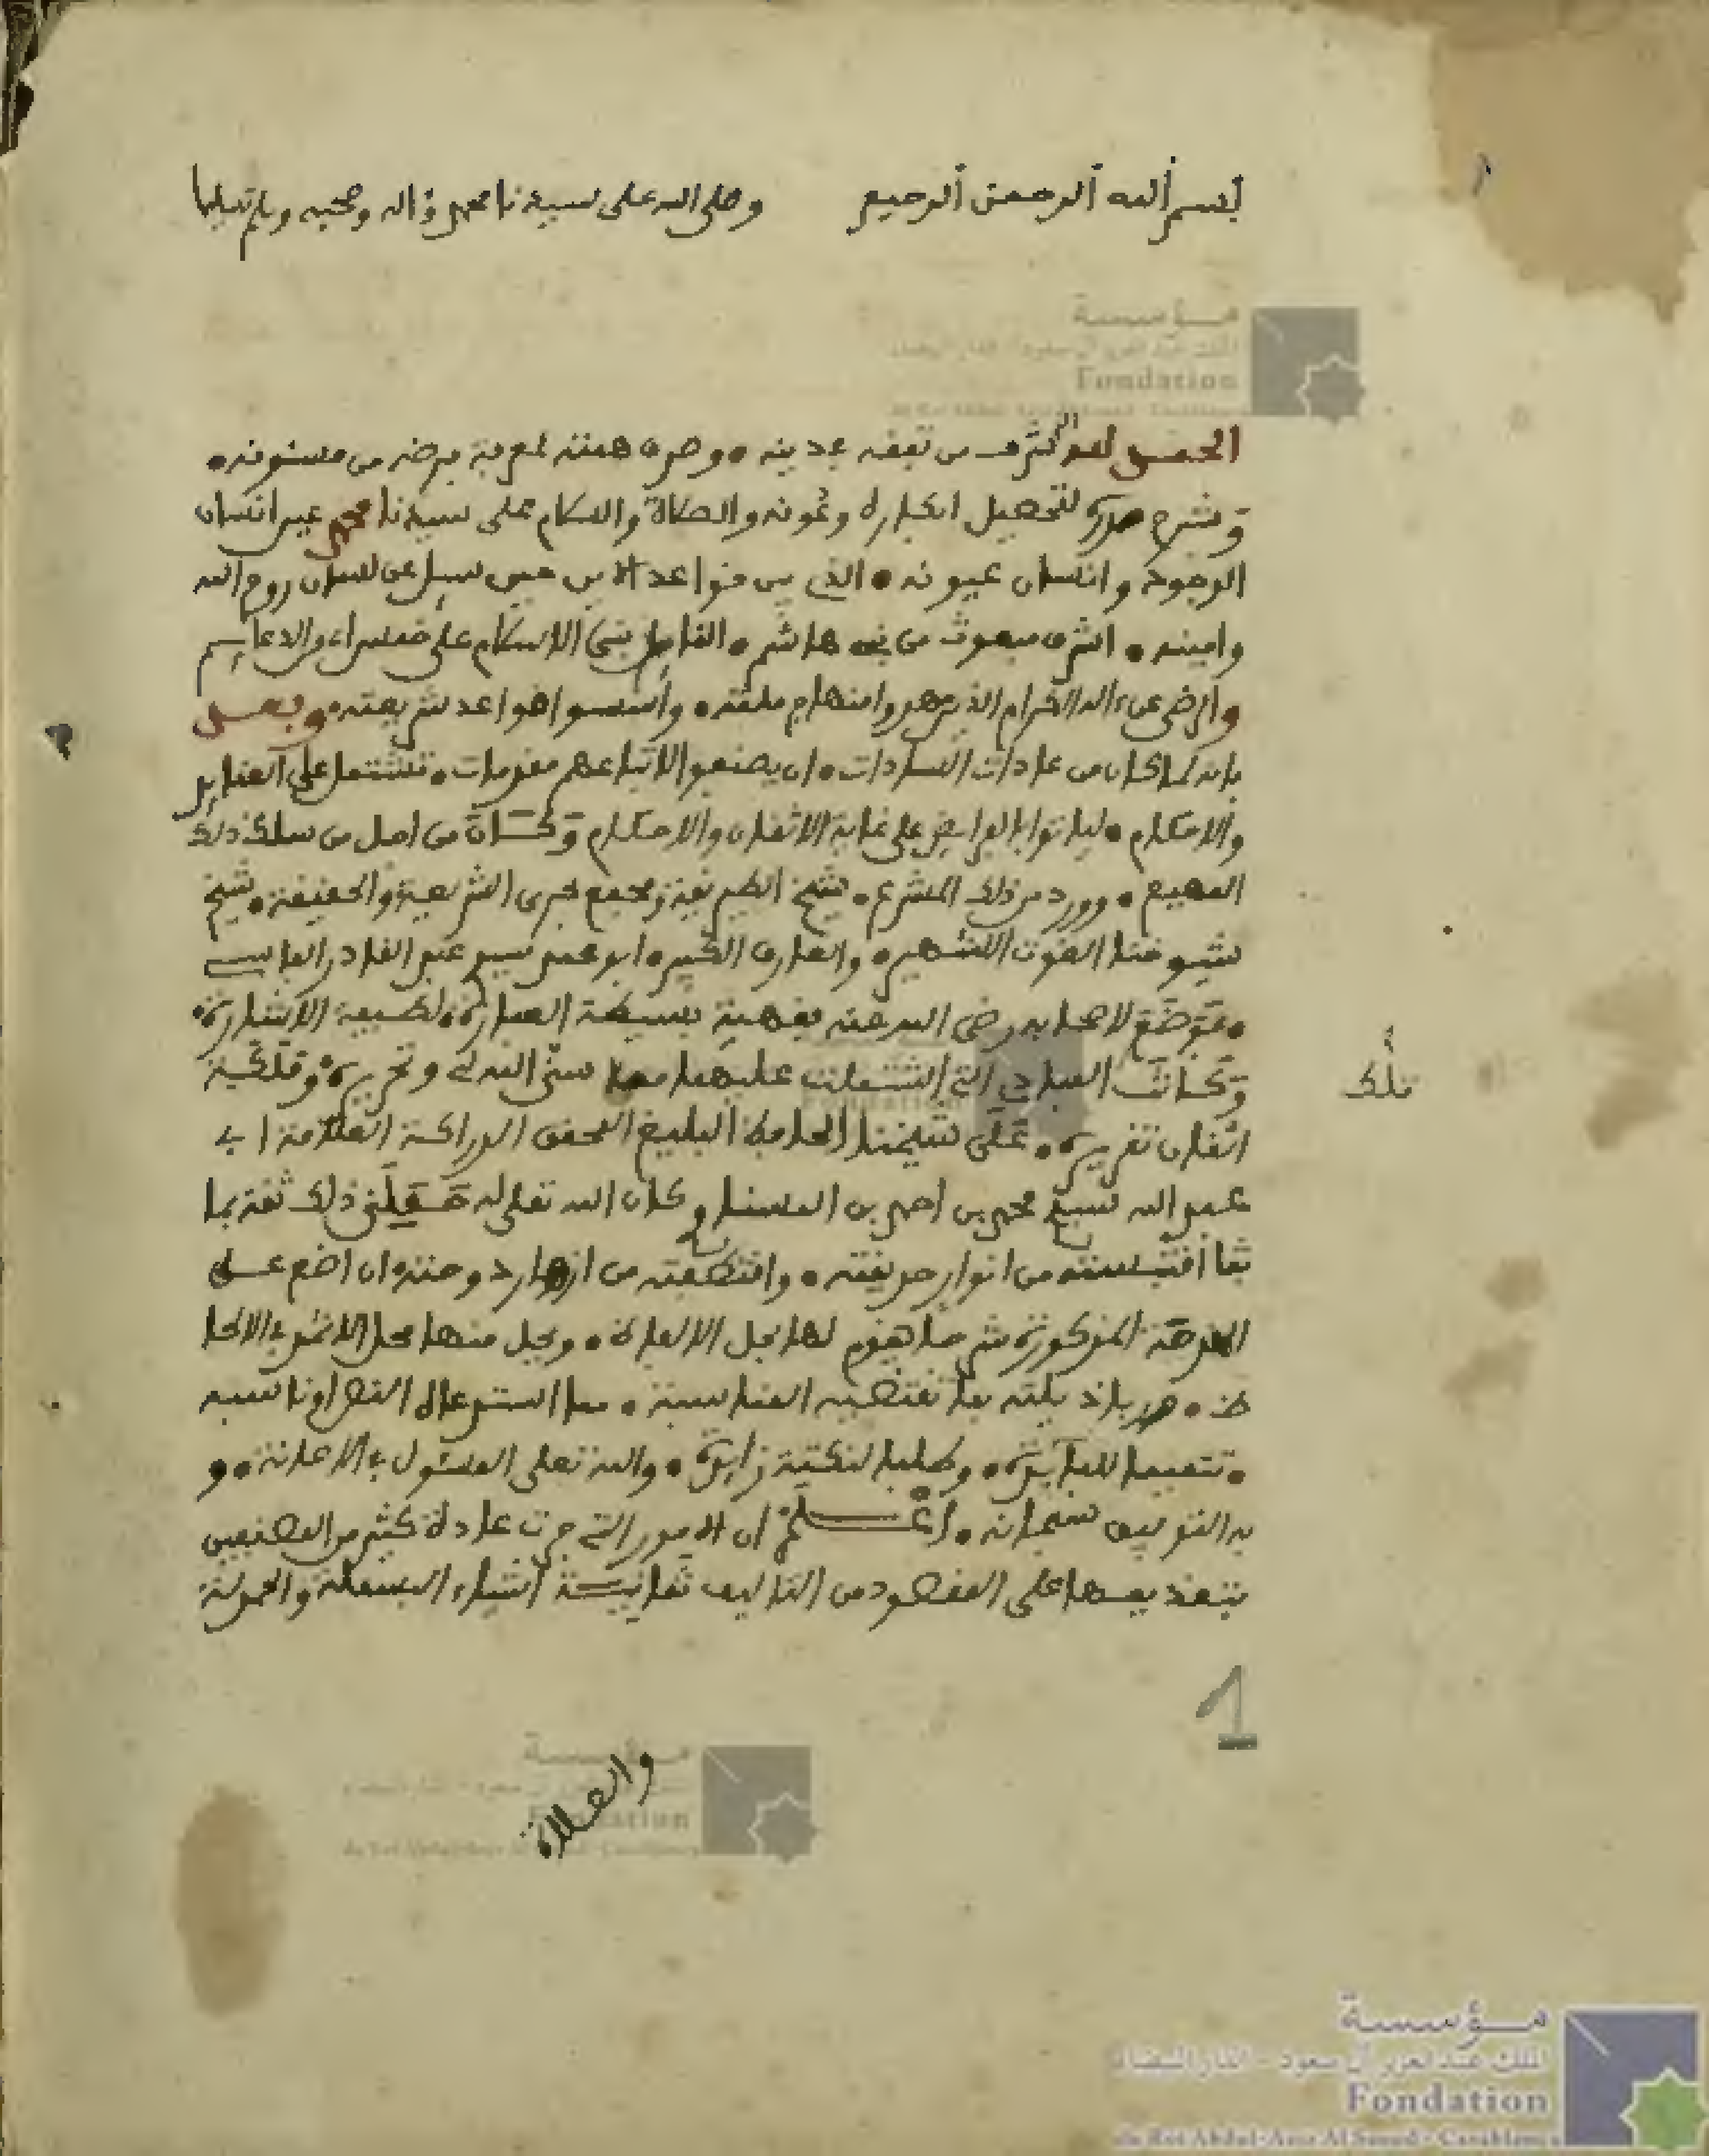 بسم الله الرحمن الرحيم وصلى الله على سيدنا محمد وءاله وصحبه وسلم تسليما
مؤسسة
الملك عبد العزيز آل سعود - الدار البيضاء
Fondation
du Roi Abdul-Aziz Al Saoud - Casablanca
الحمد لله الذي شرف من تفقه في دينه وصرف همته لمعرفة فرضه من مسنونه
وشرح صدره لتحصيل ابكاره وعونه والصلاة والسلام على سيدنا محمد عين انسان
الوجود وانسان عيونه الذي بين قواعد الدين حين سئل عن لسان روح الله
وامينه اشرف مبعوث من بني هاشم القائل بني الاسلام على خمس
والرضى عن ءاله الكرام الذين مهدوا منهاج ملته واسسوا قواعد شريعته وبعد
فانه لما كان من عادات السادات ان يصنعوا لاتباعهم مقدمات تشتمل على العقائد
والاحكام لياتوا بالفرايض على غاية الاتقان والاحكام وكان من اجل من سلك ذلك
المهيع وورد من ذلك المشرع شيخ الطريقة ومجمع بحري الشريعة والحقيقة شيخ
شيوخنا الغوث الشهير والعارف الكبير ابو محمد سيدي عبد القادر الفاسي
فوضع لاصحابه رضي الله عنه فقهية بسيطة العبارة لطيفة الاشارة
وكانت العبادة التي اشتملت عليها مما سنى الله لي وتحريره وقلكية
تلك
اتقان تقريره على شيخنا الحافظ البليغ المحقق الدراكة العلامة ابي
عبد الله سيدي محمد بن احمد بن المسناوي كان الله تعالى له ذلك ثقة بما
بما اقتبسته من انوار حديقته واقتطفته من ازهار دوحته ان اضع على
المقدمة المذكورة شرحا يقوم لها بحل الالفاظ ويحل منها محل الانس في الالحاظ
مما تقتضيه المناسبة مما استدعاه النص او ناسبه
تتميما للفايدة وطلبا لنكتة زايدة والله تعالى المسئول في الاعانة و
به التوفيق سبحانه اعلم ان الامور التي جرت عادة كثير من المصنفين
بتقديمها على المقصود من التاليف ثمانية اشياء البسملة والحمدلة
1
والصلاة
مؤسسة
Fondation
du Roi Abdul-Aziz Al Saoud - Casablanca
مؤسسة
الملك عبد العزيز آل سعود - الدار البيضاء
Fondation
du Roi Abdul-Aziz Al Saoud - Casablanca